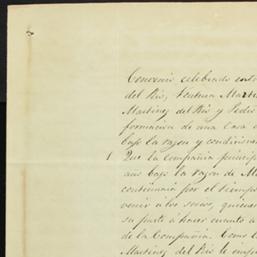 Convenio celebrado entre
del Rio, Ventura Marti
Martinez del Rio y Pedro
formacion de una Casa
bajo la razon y condiciones
1 Que la Compañia principi
año bajo la razon de M
continuará por el tiempo
venir á los socios, quienes
su parte á hacer cuanto
de la Compañia. Como
Martinez del Rio